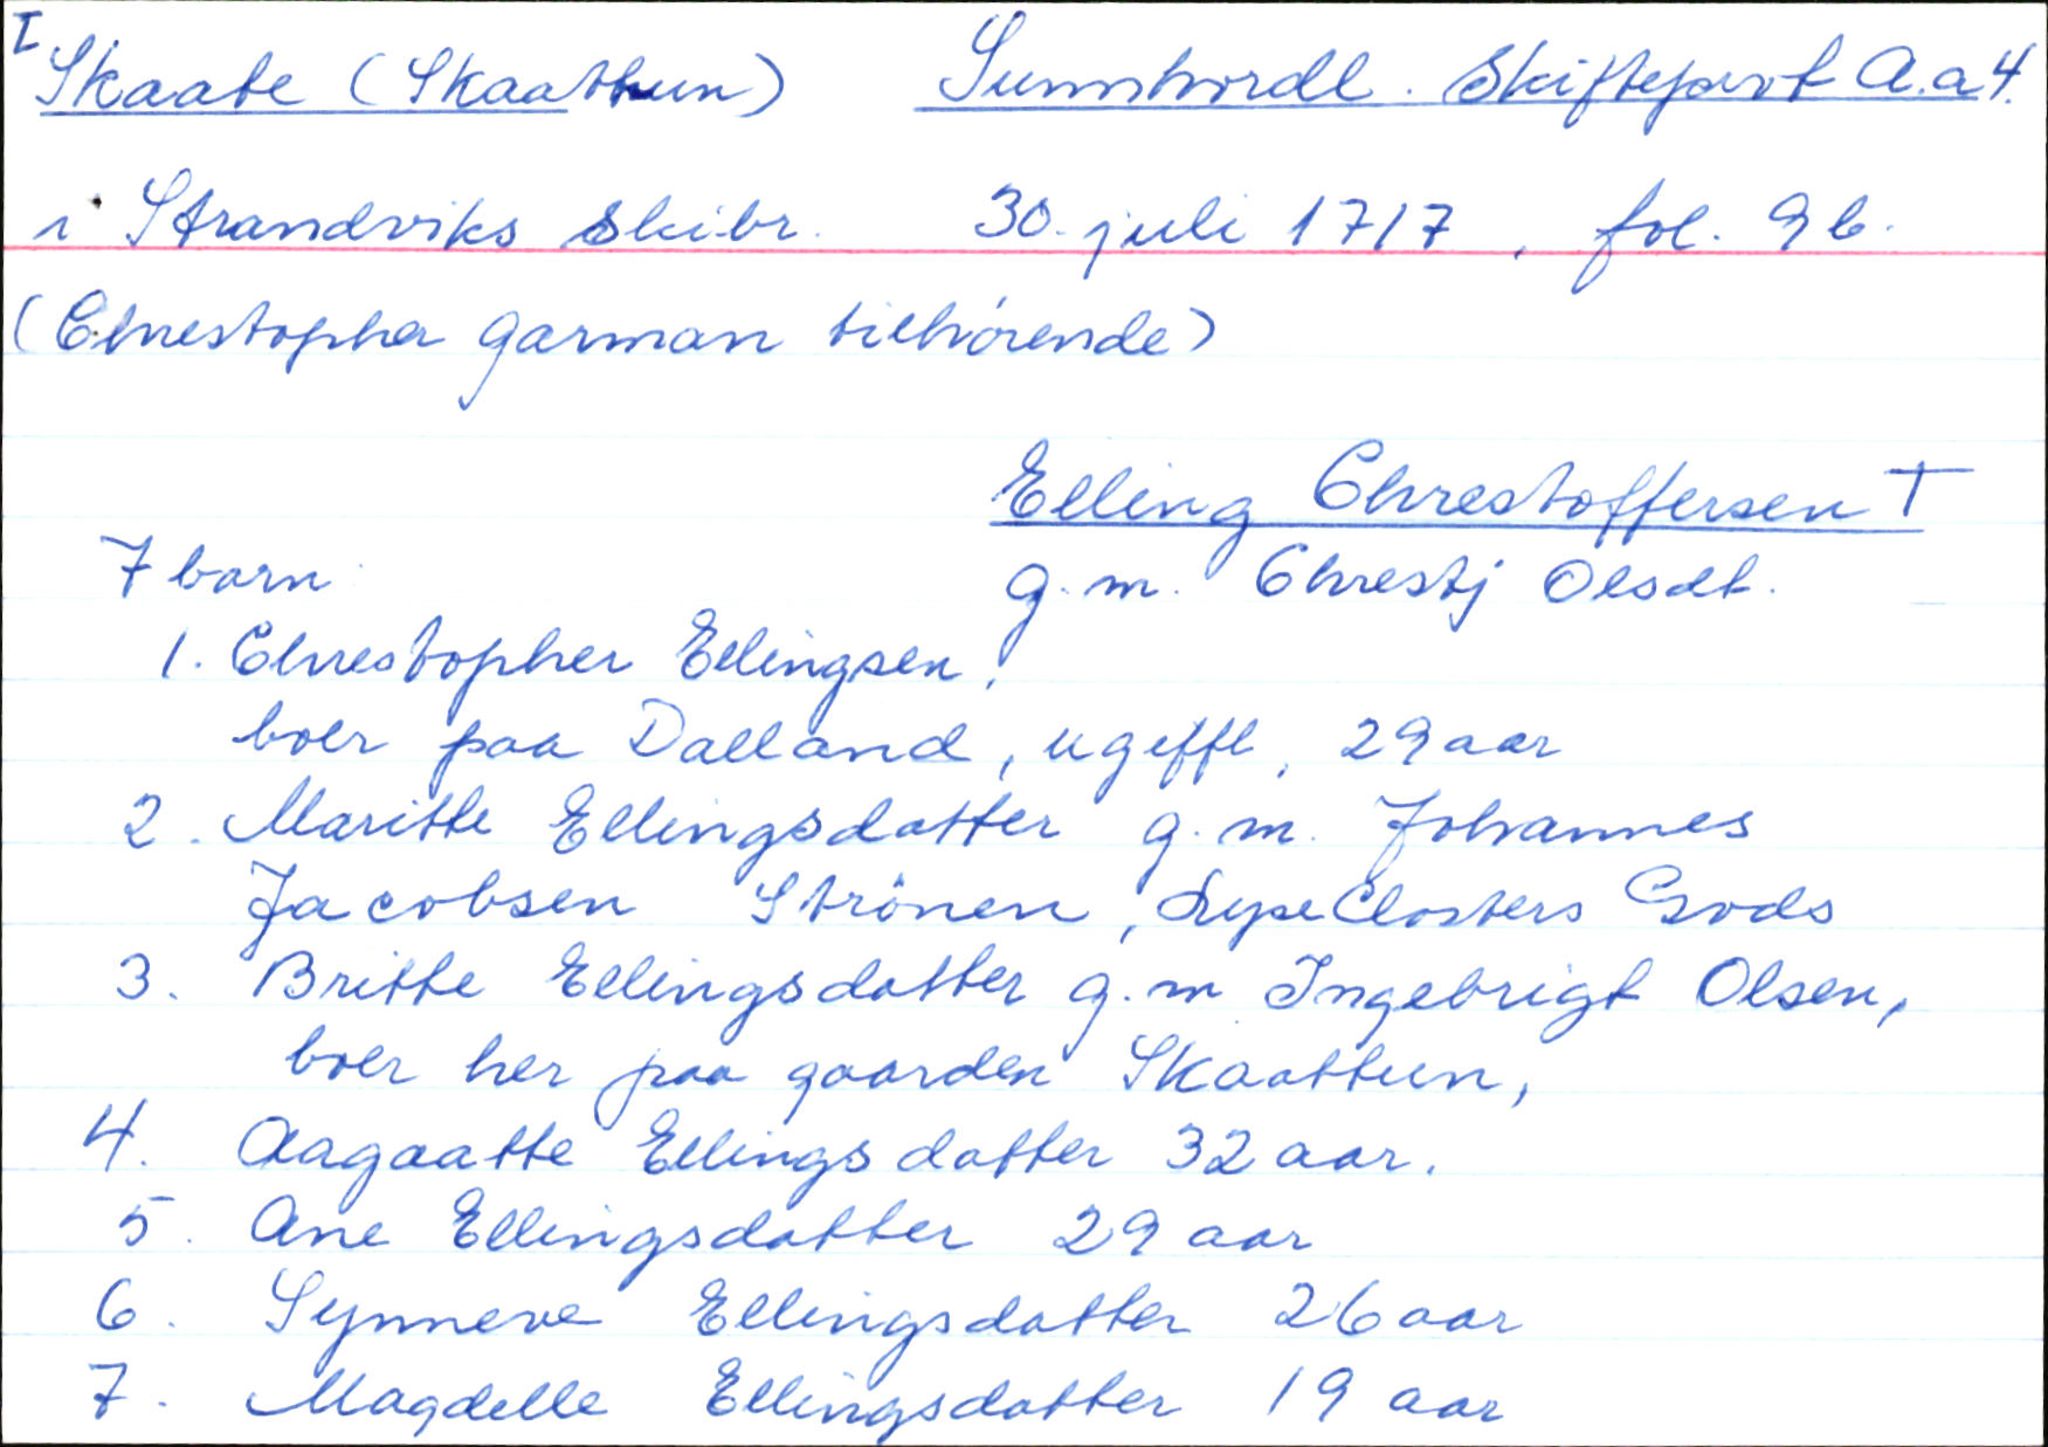 I
Skaate (Skaathun) Sunnhordl. Skifteprot A.a 4.
i Strandviks Skibr. 30. juli 1717, fol. 9 b.
(Chrestopher Garman tilhörende)
Elling Chrestoffersen †
7 barn g. m. Chrestj Olsdt.
1. Chrestopher Ellingsen,
boer paa Dalland, ugifft, 29 aar
2. Maritte Ellingsdatter g. m. Johannes
Jacobsen Strönen, LyseClosters Gods
3. Britte Ellingsdatter g. m Ingebrigt Olsen,
boer her paa gaarden Skaattun,
4. Aagaatte Ellingsdatter 32 aar.
5. Ane Ellingsdatter 29 aar
6. Synneve Ellingsdatter 26 aar
7. Magdelle Ellingsdatter 19 aar